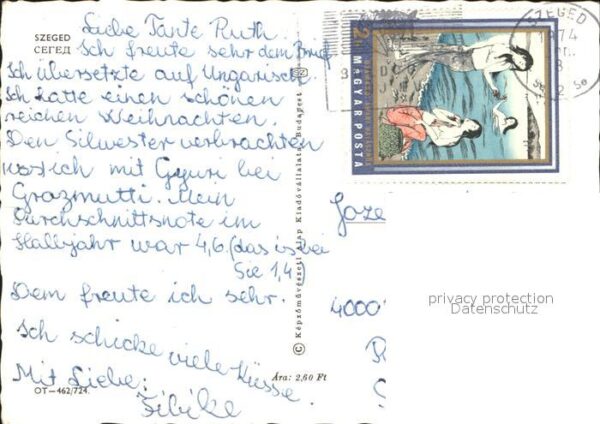 SZEGED
СЕГЕД
Liebe Tante Ruth.
Ich freute sehr dem Brief
Ich übersetzte auf Ungarische
Ich hatte einen schönen
reichen Weihnachten.
Den Silwester verbrachten
ich mit Gyuri bei
Grozmutti. Mein
Durchschnittsnote im
Halbjahr war 4,6.(das ist bei
Sie 1,4)
Dem freute ich sehr.
Ich schicke viele Küsse.
Mit Liebe:
Zibike
OT—462/724.
Ára: 2,60 Ft
© Képzőművészeti Alap Kiadóvállalata, Budapest
2
MAGYAR POSTA
SZEGED
Joze
4000
privacy protection
Datenschutz